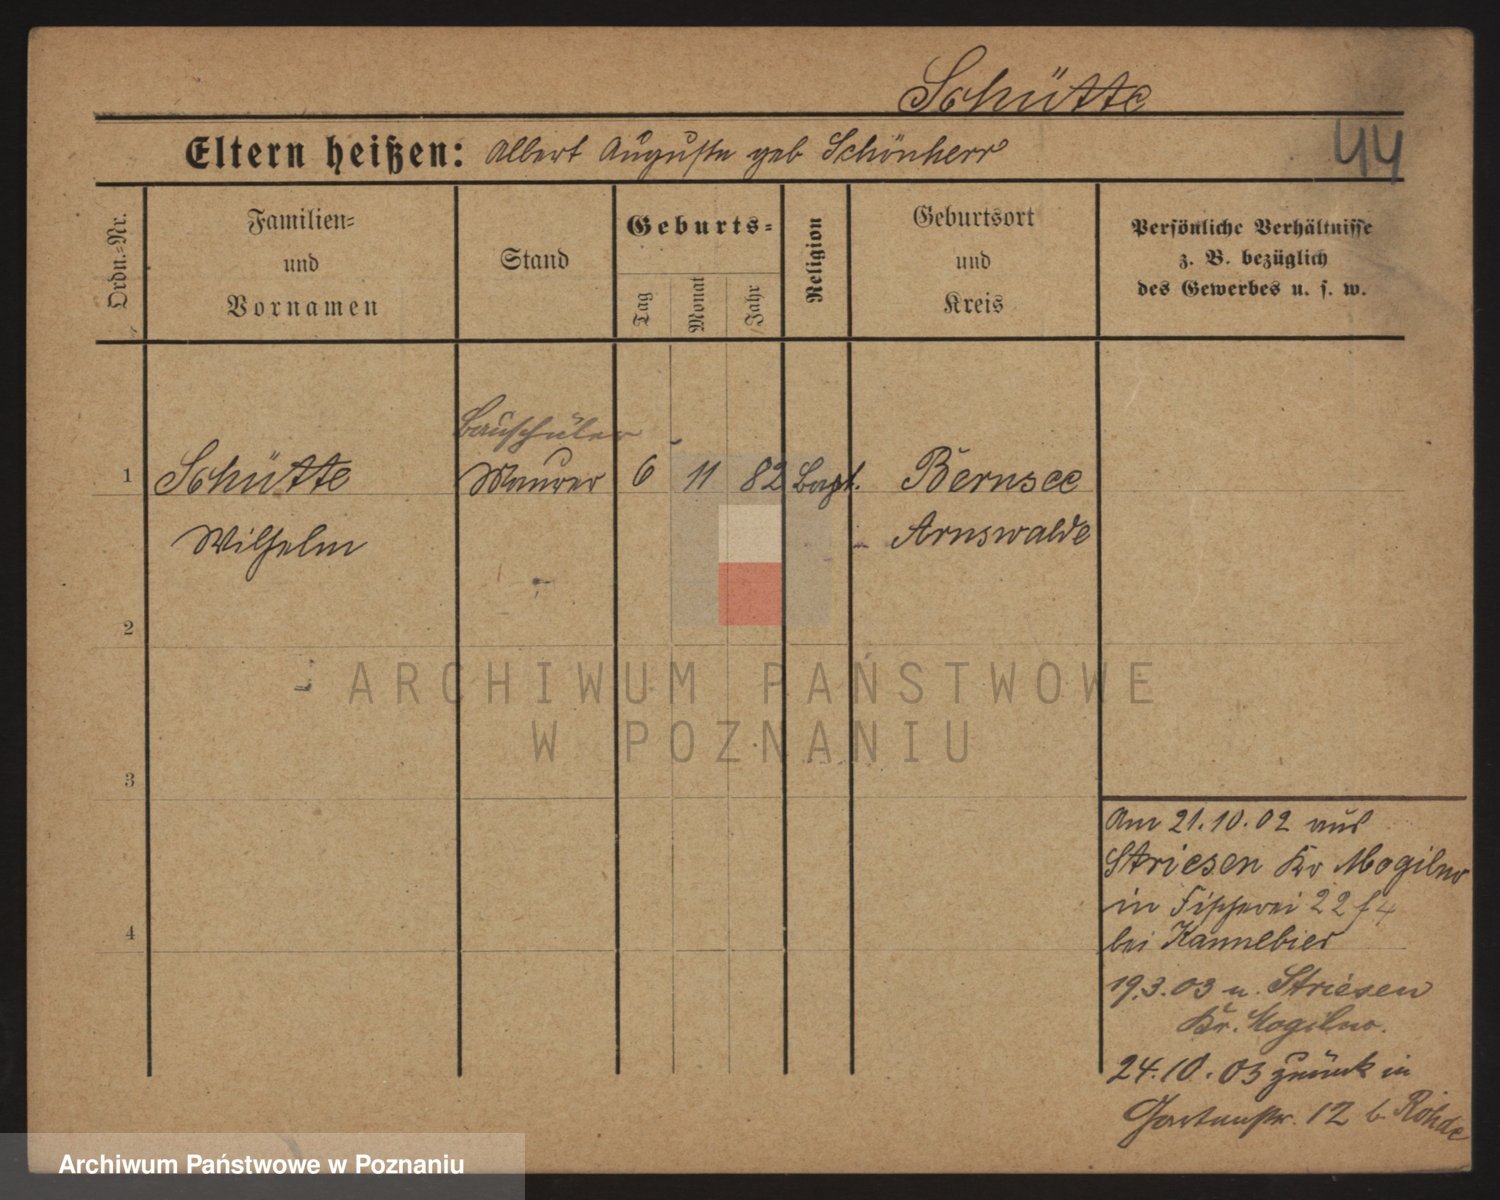 Schütte
44
Eltern heißen: Albert Auguste geb Schönherr
Ordn.-Nr.
Familien-
und
Vornamen
Stand
Geburts-
Tag
Monat
Jahr
Religion
Geburtsort
und
Kreis
Persönliche Verhältnisse
z. B. bezüglich
des Gewerbes u. s. w.
Bauschüler
1 Schütte Maurer 6 11 82 Bapt. Bernsee
Wilhelm Arnswalde
2
3
4
Am 21.10.02 aus
Striesen Kr Mogilno
in Fischerei 22 f 4
bei Kannebier
19.3.03 n. Striesen
Kr. Mogilno.
24.10.03 zurück in
Gartenstr. 12 b. Rohde
ARCHIWUM PAŃSTWOWE
W POZNANIU
Archiwum Państwowe w Poznaniu